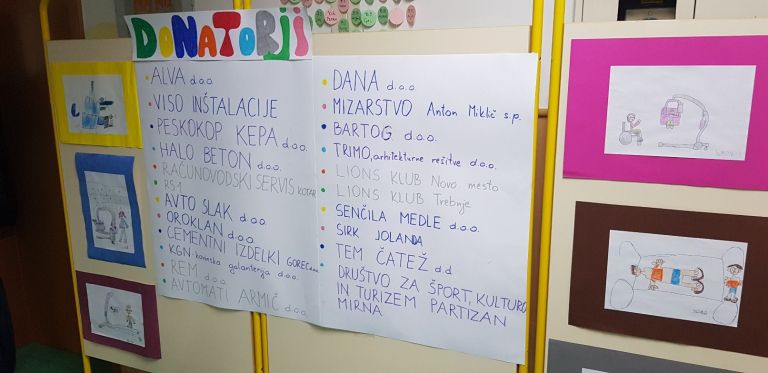 DONATORJI
ALVA d.o.o.
VISO INŠTALACIJE
PESKOKOP KEPA d.o.o.
HALO BETON d.o.o.
RAČUNOVODSKI SERVIS KOTAR
RS-1
AVTO SLAK d.o.o.
OROKLAN d.o.o.
CEMENTNI IZDELKI GOREC
KGN-kovinska galanterija d.o.o.
REM d.o.o.
AVTOMATI ARMIČ d.o.o.
DANA d.o.o.
MIZARSTVO Anton Miklič s.p.
BARTOG d.o.o.
TRIMO, arhitekturne rešitve d.o.o.
LIONS KLUB Novo mesto
LIONS KLUB Trebnje
SENČILA MEDLE d.o.o.
SIRK JOLANDA
TEM ČATEŽ d.d.
DRUŠTVO ZA ŠPORT, KULTURO
IN TURIZEM PARTIZAN
MIRNA